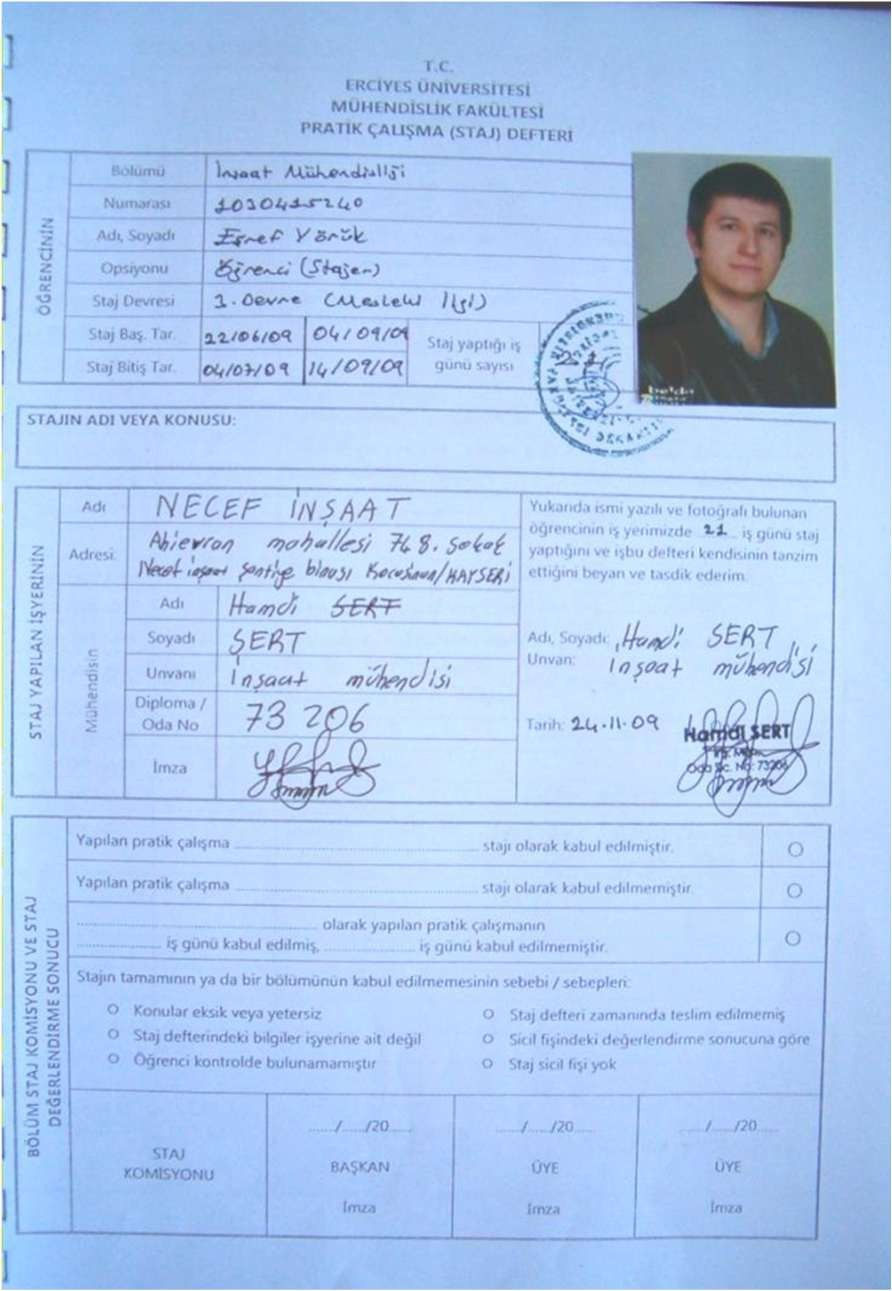 T.C.
ERCİYES ÜNİVERSİTESİ
MÜHENDİSLİK FAKÜLTESİ
PRATİK ÇALIŞMA (STAJ) DEFTERİ
ÖĞRENCİNİN
Bölümü İnşaat Mühendisliği
Numarası 1030415240
Adı, Soyadı Eşref Yörük
Opsiyonu Öğrenci (Stajer)
Staj Devresi 1. Devre (Meslek İlgi)
Staj Baş. Tar. 22/06/09 04/09/09
Staj Bitiş Tar. 04/07/09 14/09/09
Staj yaptığı iş
günü sayısı 21
STAJIN ADI VEYA KONUSU:
STAJ YAPILAN İŞYERİNİN
Adı NECEF İNŞAAT
Adresi: Ahievran mahallesi 748. Sokak
Necef inşaat şantiye binası Kocasinan/KAYSERİ
Mühendisin
Adı Hamdi SERT
Soyadı SERT
Unvanı İnşaat mühendisi
Diploma /
Oda No 73 206
İmza
Yukarıda ismi yazılı ve fotoğrafı bulunan
öğrencinin iş yerimizde 21 iş günü staj
yaptığını ve işbu defteri kendisinin tanzim
ettiğini beyan ve tasdik ederim.
Adı, Soyadı: Hamdi SERT
Unvan: İnşaat mühendisi
Tarih: 24.11.09
Hamdi SERT
Oda Sc. No: 73206
BÖLÜM STAJ KOMİSYONU VE STAJ
DEĞERLENDİRME SONUCU
Yapılan pratik çalışma ........ stajı olarak kabul edilmiştir.
Yapılan pratik çalışma ........ stajı olarak kabul edilmemiştir.
........ olarak yapılan pratik çalışmanın
........ iş günü kabul edilmiş, ........ iş günü kabul edilmemiştir.
Stajın tamamının ya da bir bölümünün kabul edilmemesinin sebebi / sebepleri:
Konular eksik veya yetersiz
Staj defteri zamanında teslim edilmemiş
Staj defterindeki bilgiler işyerine ait değil
Sicil fişindeki değerlendirme sonucuna göre
Öğrenci kontrolde bulunamamıştır
Staj sicil fişi yok
STAJ
KOMİSYONU
....../....../20......
BAŞKAN
İmza
....../....../20......
ÜYE
İmza
....../....../20......
ÜYE
İmza